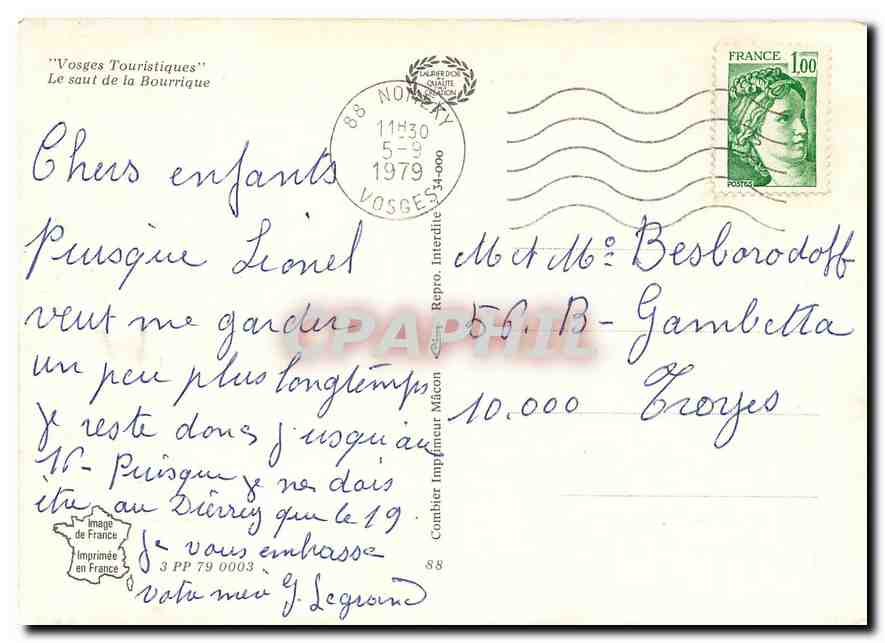 "Vosges Touristiques"
Le saut de la Bourrique
LAURIER D'OR
DE LA
QUALITÉ
CRÉATION
88 NOMEXY
11H30
5-9
1979
VOSGES
FRANCE
1,00
POSTES
Chers enfants
Puisque Lionel
veut me garder
un peu plus longtemps
je reste donc jusqu'au
16 - Puisque je ne dois
être au Dierrey que le 19.
Je vous embrasse
votre mère G. Legrand
Image
de France
Imprimée
en France
3 PP 79 0003
88
Combier Imprimeur Mâcon Repro. Interdite 34-000
CPAPHIL
M et Me Besborodoff
56. B - Gambetta
10.000 Troyes